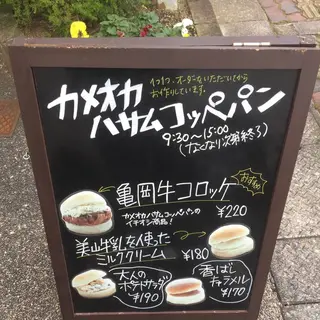 1つ1つ、オーダーをいただいてから
お作りしています。
カメオカ
ハサムコッペパン
9:30~15:00
(なくなり次第終了)
亀岡牛コロッケ
おすすめ
カメオカハサムコッペパンの
イチオシ商品!
¥220
美山牛乳を使った
ミルククリーム
¥180
大人の
ポテトサラダ
¥190
香ばし
キャラメル
¥170